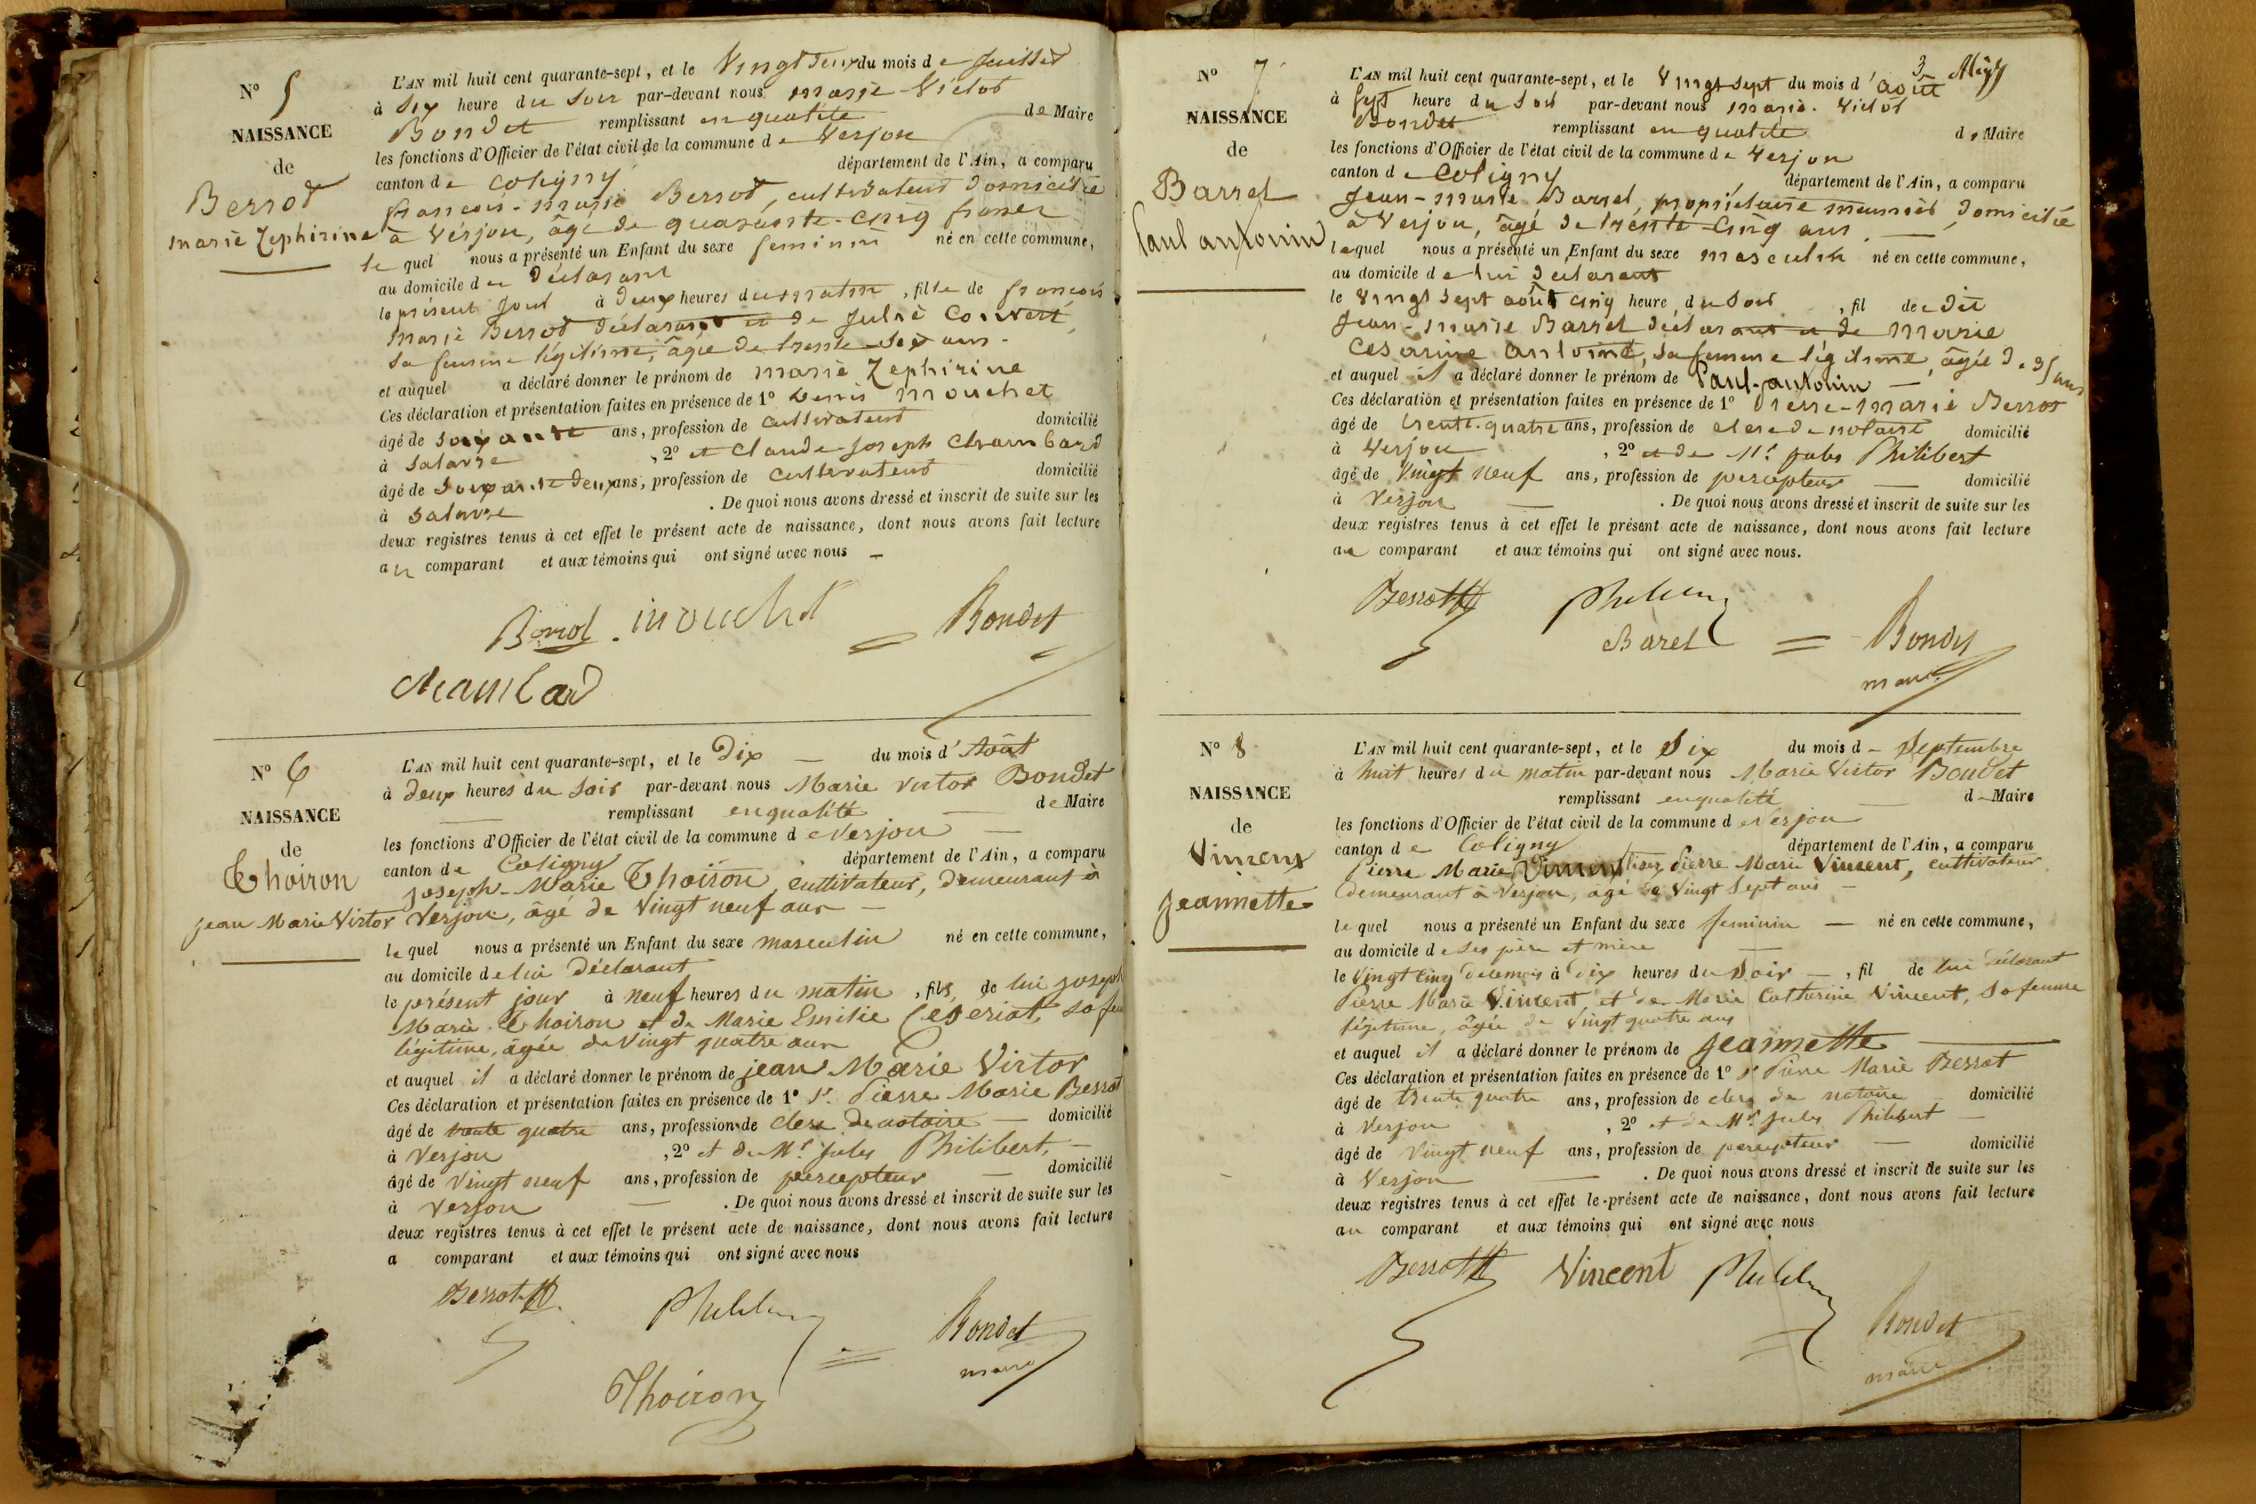 N° 5
NAISSANCE
de
Berrod
Marie Zephirine
L'AN mil huit cent quarante-sept, et le Vingt deux du mois de juillet
à six heure du soir par-devant nous marie Victor
Bondet remplissant en qualité de Maire
les fonctions d'Officier de l'état civil de la commune de Verjon
canton de Coligny département de l'Ain, a comparu
françois-marie Berrod, cultivateur domicilié
à Verjon, âgé de quarante-cinq
le quel nous a présenté un Enfant du sexe feminin né en cette commune,
au domicile du déclarant
le présent jour à deux heures du matin, fille de françois
marie Berrod déclarant et de Julie Convert,
sa femme légitime, âgée de trente-six ans.
et auquel a déclaré donner le prénom de marie Zephirine
Ces déclaration et présentation faites en présence de 1° Denis Mouchet
âgé de soixante ans, profession de cultivateur domicilié
à Salavre, 2° et Claude-Joseph Chambard
âgé de soixante deux ans, profession de cultivateur domicilié
à Salavre. De quoi nous avons dressé et inscrit de suite sur les
deux registres tenus à cet effet le présent acte de naissance, dont nous avons fait lecture
au comparant et aux témoins qui ont signé avec nous
Berrod mouchet Bondet
Chambard
N° 6
NAISSANCE
de
Thoiron
jean Marie Victor
L'AN mil huit cent quarante-sept, et le Dix du mois d'Août
à deux heures du soir par-devant nous Marie victor Bondet
remplissant en qualité de Maire
les fonctions d'Officier de l'état civil de la commune de Verjon
canton de Coligny département de l'Ain, a comparu
joseph-Marie Thoiron, cultivateur, demeurant à
Verjon, âgé de vingt neuf ans
le quel nous a présenté un Enfant du sexe masculin né en cette commune,
au domicile de lui Déclarant
le présent jour à neuf heures du matin, fils de lui joseph
Marie Thoiron et de Marie Emilie Cézériat, sa
légitime, âgée de vingt quatre ans
et auquel il a déclaré donner le prénom de jean Marie Victor
Ces déclaration et présentation faites en présence de 1° Sr. Pierre Marie Berrod
âgé de trente quatre ans, profession de clerc de notaire domicilié
à Verjon, 2° et de Mr. jules Philibert,
âgé de vingt neuf ans, profession de percepteur domicilié
à Verjon. De quoi nous avons dressé et inscrit de suite sur les
deux registres tenus à cet effet le présent acte de naissance, dont nous avons fait lecture
a comparant et aux témoins qui ont signé avec nous
Berrod Philibert Bondet
maire
Thoiron
3
N° 7
NAISSANCE
de
Barrel
Paul antonin
L'AN mil huit cent quarante-sept, et le Vingt sept du mois d'août
à sept heure du soir par-devant nous marie-Victor
Bondet remplissant en qualité de Maire
les fonctions d'Officier de l'état civil de la commune de Verjon
canton de Coligny département de l'Ain, a comparu
Jean-marie Barrel, propriétaire meunier, domicilié
à Verjon, âgé de trente-cinq ans.
lequel nous a présenté un Enfant du sexe masculin né en cette commune,
au domicile de lui déclarant
le vingt sept août cinq heure du soir, fil de dit
Jean-marie Barrel déclarant et de Marie
Césarine antoine, sa femme légitime, âgée de 35 ans
et auquel il a déclaré donner le prénom de Paul-antonin
Ces déclaration et présentation faites en présence de 1° Pierre-marie Berrod
âgé de trente-quatre ans, profession de clerc de notaire domicilié
à Verjon, 2° et de Mr. jules Philibert
âgé de vingt neuf ans, profession de percepteur domicilié
à Verjon. De quoi nous avons dressé et inscrit de suite sur les
deux registres tenus à cet effet le présent acte de naissance, dont nous avons fait lecture
au comparant et aux témoins qui ont signé avec nous.
Berrod Philibert
Barel Bondet
maire
N° 8
NAISSANCE
de
Vincent
Jeannette
L'AN mil huit cent quarante-sept, et le Six du mois de Septembre
à huit heures du matin par-devant nous Marie Victor Bondet
remplissant en qualité de Maire
les fonctions d'Officier de l'état civil de la commune de Verjon
canton de Coligny département de l'Ain, a comparu
Pierre Marie Vincent lisez Pierre Marie Vincent, cultivateur
demeurant à Verjon, âgé de vingt sept ans
le quel nous a présenté un Enfant du sexe feminin né en cette commune,
au domicile de ses père et mère
le vingt cinq à dix heures du soir, fil de lui déclarant
Pierre Marie Vincent, et de Marie Catherine Vincent, sa femme
légitime, âgée de vingt quatre ans
et auquel il a déclaré donner le prénom de Jeannette
Ces déclaration et présentation faites en présence de 1° Sr Pierre Marie Berrod
âgé de trente quatre ans, profession de clerc de notaire domicilié
à Verjon, 2° et de Mr. Jules Philibert
âgé de vingt neuf ans, profession de percepteur domicilié
à Verjon. De quoi nous avons dressé et inscrit de suite sur les
deux registres tenus à cet effet le présent acte de naissance, dont nous avons fait lecture
au comparant et aux témoins qui ont signé avec nous
Berrod Vincent Philibert
Bondet
maire